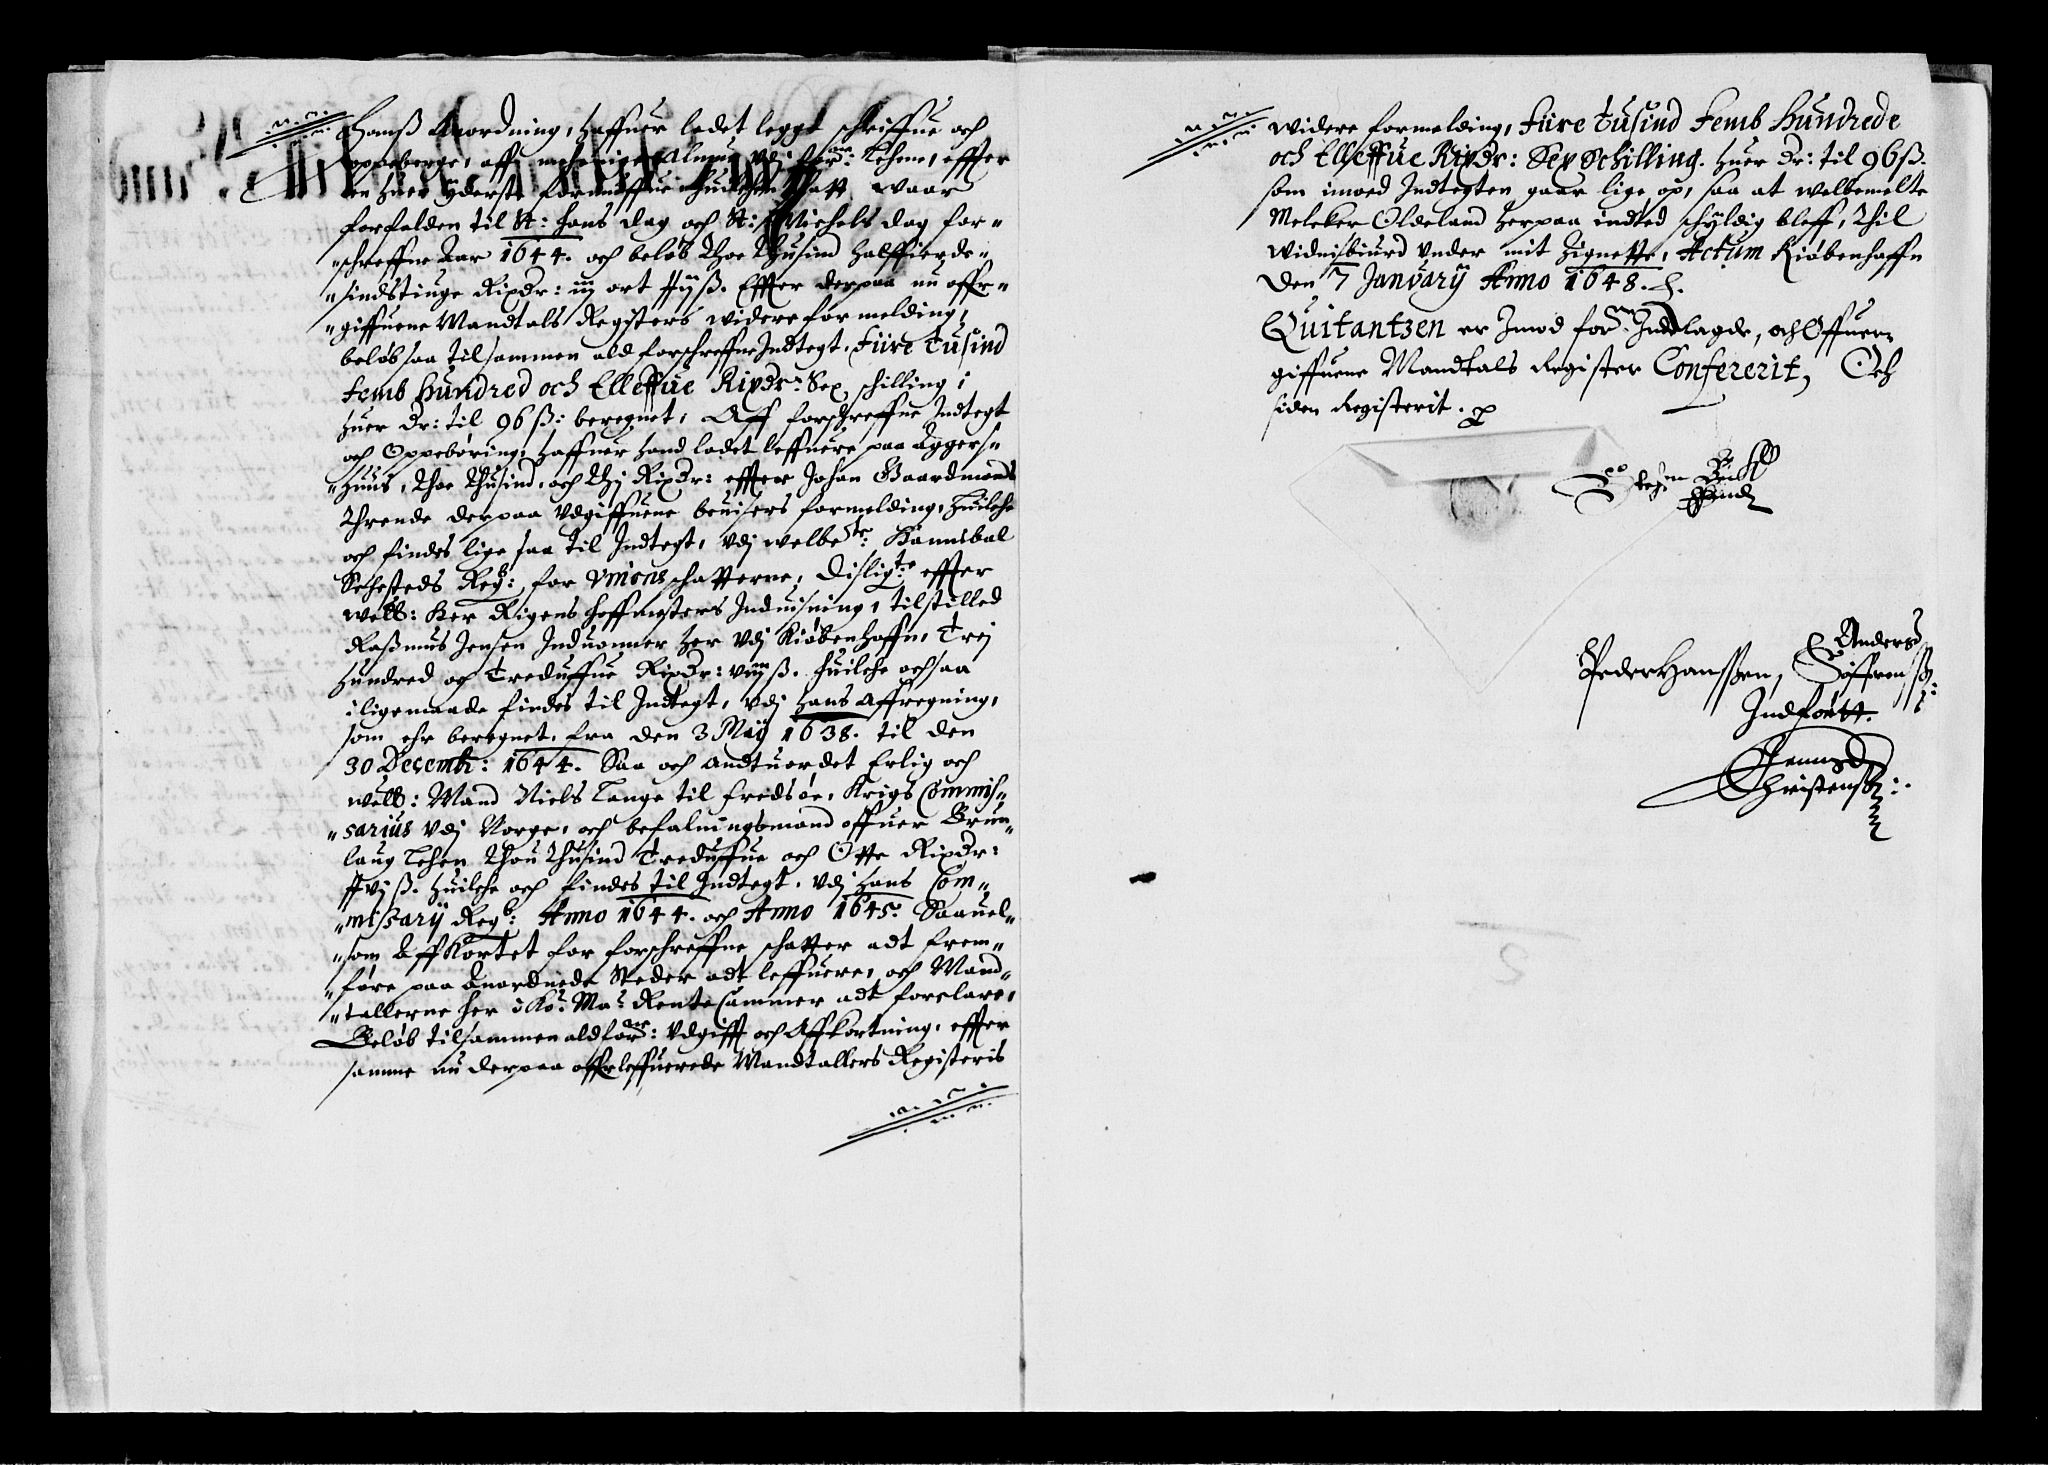 Hanß Anordning, haffuer ladet leggt schriffue och
oppeberge, aff menige Almue vdj forne: Lehne, effter
en huer yderste formueffue huilchen schatt waar
forfalden til St: Hans dag och St: Michels dag for-
schreffne Aar 1644. och beløb Thoe Thusind halffierde-
sindstiuge Rixdr: iij ort ß. Effter derpaa nu offr-
giffuene Mandtals Regsters widere formelding,
beløb saa tilsammen ald forschreffne Indtegt. Fiire tusind
femb hundred och Elleffue Rixdr: Sex schilling i
huer dr: til 96 ß: beregnet, Aff forschreffne Indtegt
och Oppebøring, haffuer hand ladet leffuere paa Aggers-
huus, Thoe Thusind, och Thj Rixdr: effter Johan Gaardmands
Thrende derpaa vdgiffuene beuisers formelding, huilche
och findes lige saa til Indtegt, vdj welbete: Hannibal
Sehesteds Regb: for Vnions schatterne, Disligte: effter
welb: Her Rigens Hoffmesters Induisning, tilstilled
Raßmus Jensen Induonner her vdj Kiøbenhaffn, Trej
hundred og Treduffue Rixdr: viiij ß. huilche ochsaa
i ligemaade findes til Indtegt, vdj hans Affregning,
som ehr beregnet, fra den 3 Maij 1638. til den
30 Decemb: 1644. Saa och andtuordet Erlig och
welb: Mand Niels Lange til Fredsøe, Krigs Commis-
sarius vdj Norge, och befalningsmand offuer Brun-
laug Lehen Thou Thusind Treduffue och Otte Rixdr:
xvj ß. huilche och findes til Indtegt, vdj hans Com-
missarij Regb: Anno 1644. och Anno 1645. Saauel-
som Affkortet for forschreffne schatter adt frem-
føre paa Anordnede Steder adt leffuere, och Mand-
tallerne her i Ko: Ma: Rente Cammer adt forclare,
Beløb tilsammen ald forne: vdgifft och Affkortning, effter
samme nu derpaa offrleffuerede Mandtallers Registeris
widere formelding, Fiire tusind Femb Hundrede
och Elleffue Rixdr: Sex Schilling. huer dr: til 96 ß.
som imod Indtegten gaar lige op, saa at welbemelte
Meleker Oldeland herpaa indted schyldig bleff, Thil
widnisbiurd vnder mit Zignette, Actum Kiøbenhaffn
den 7 Januarij Anno 1648.
Quitantzen er Imod forne Indlagde, och Offuer-
giffuene Mandtals Register Confererit, Och
siden Registerit.
Peder Hanssen, Anders
Søffrenß
Indførtt.
Gemund
Christensen: